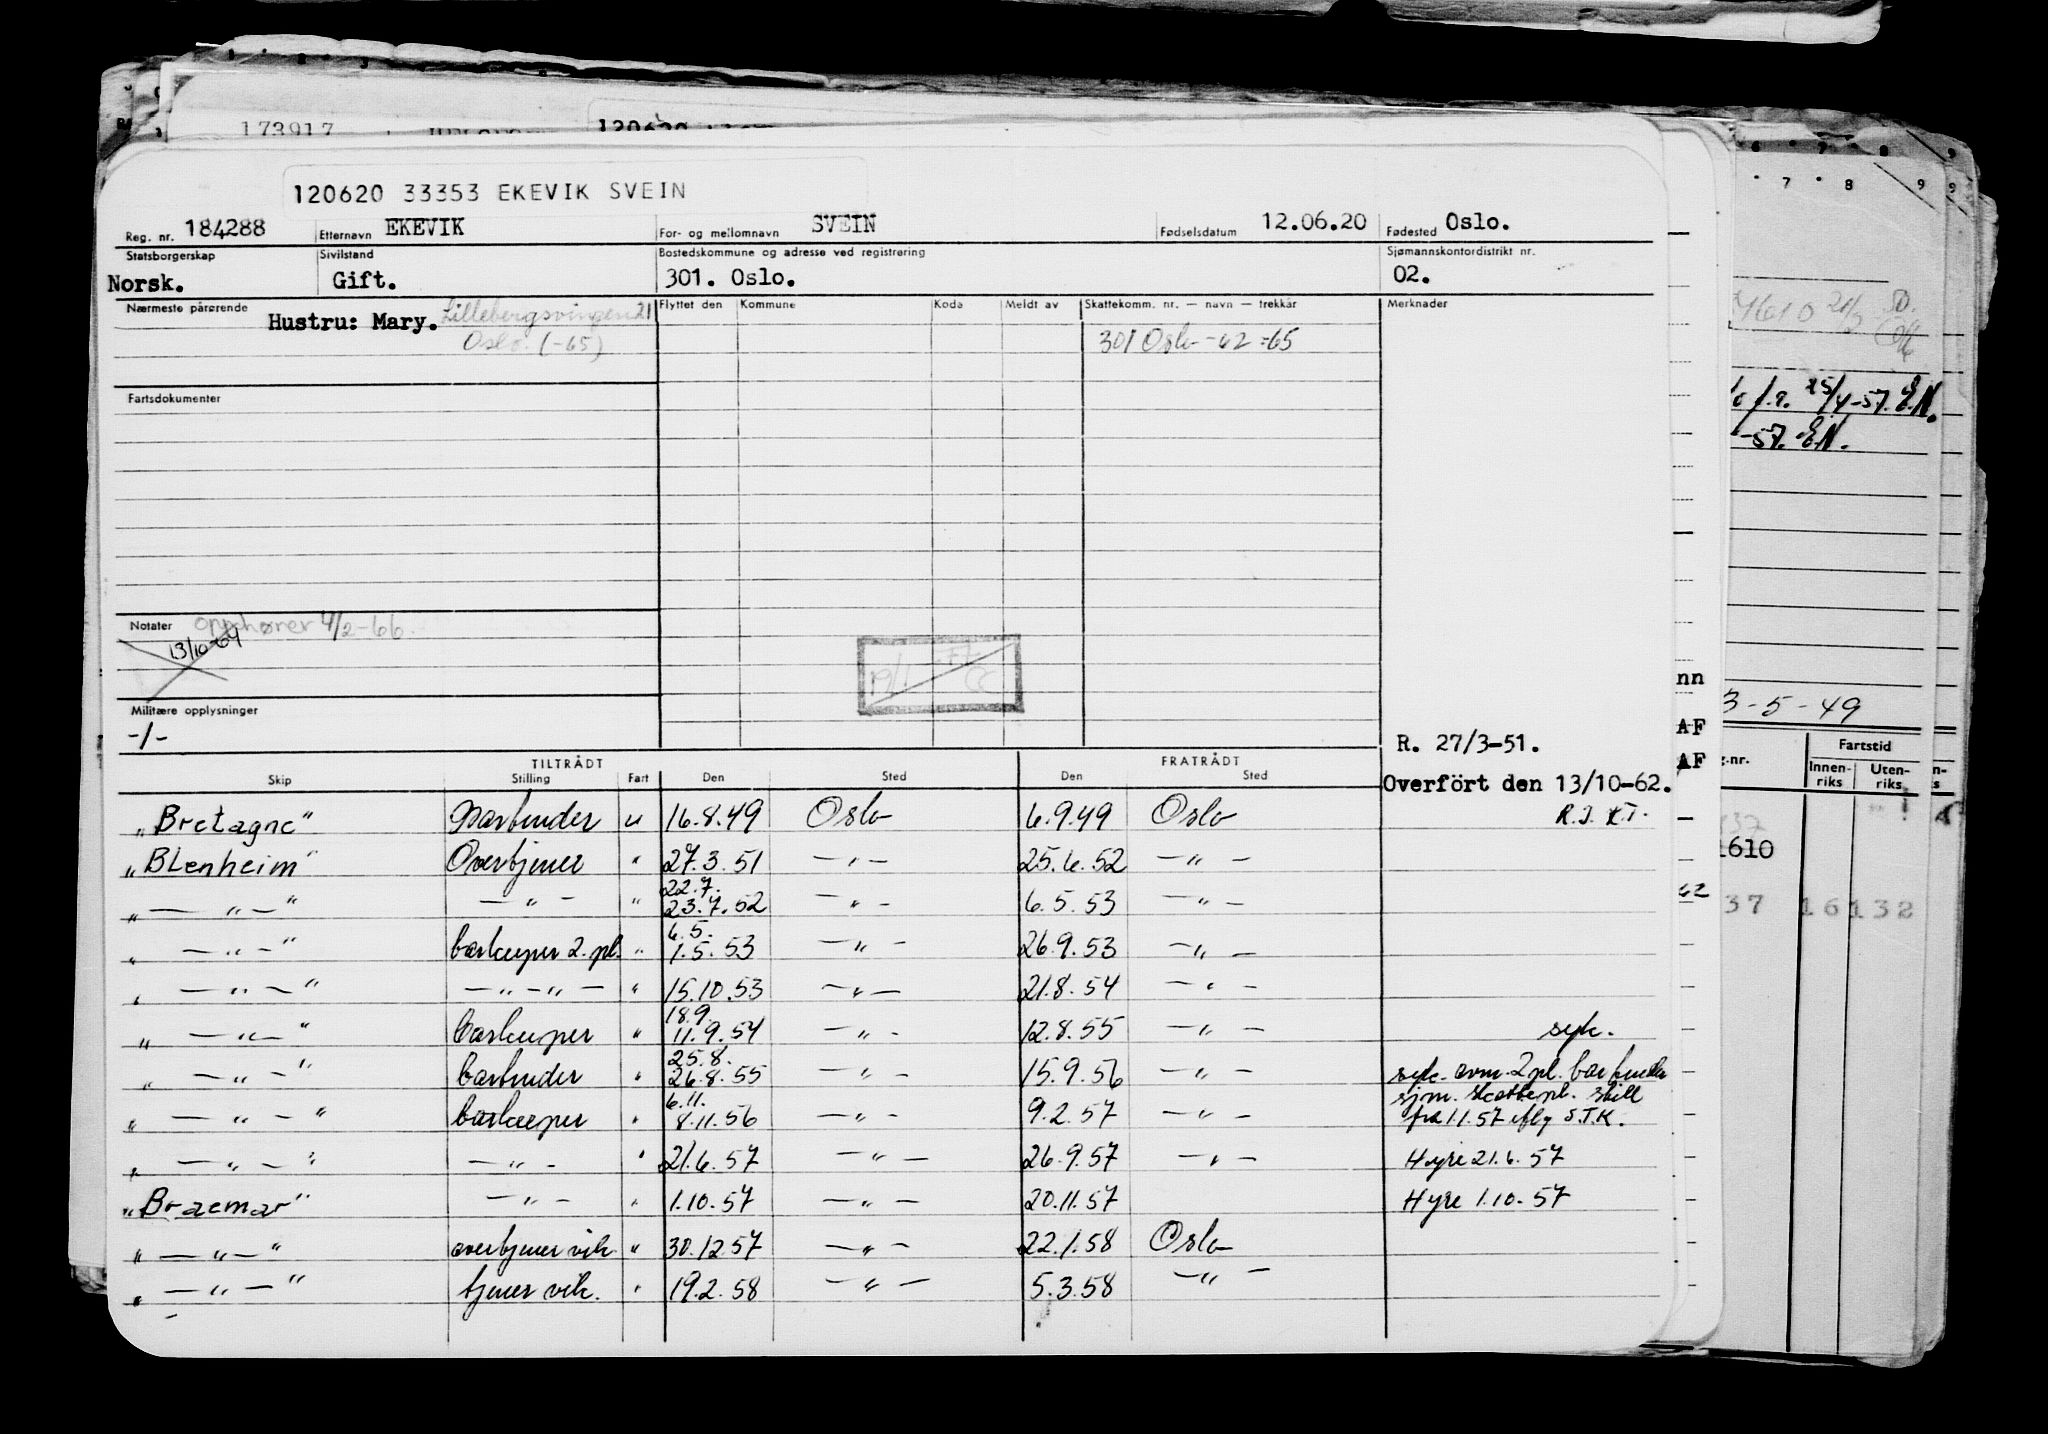 173917
120620
120620 33353 EKEVIK SVEIN
Reg. nr. 184288 Etternavn EKEVIK For- og mellomnavn SVEIN Fødselsdatum 12.06.20 Fødested Oslo.
Statsborgerskap Sivilstand Bostedskommune og adresse ved registrering Sjømannskontordistrikt nr.
Norsk. Gift. 301. Oslo. 02.
Nærmeste pårørende Flyttet den Kommune Kode Meldt av Skattekomm. nr. — navn — trekkår Merknader
Hustru: Mary. Lillebergsvingen 21
Oslo. (-65) 301 Oslo -62 -65
Fartsdokumenter
Notater opphører 4/2-66.
13/10-64
19/1 -77 CC
Militære opplysninger
-/-
R. 27/3-51.
TILTRÅDT FRATRÅDT
Skip Stilling Fart Den Sted Den Sted
Overført den 13/10-62.
"Bretagne" Barbinder u 16.8.49 Oslo 6.9.49 Oslo R.J. K.T.
"Blenheim" Overtjener " 27.3.51 —"— 25.6.52 —"—
22.7.
"—"—" —"— " 23.7.52 —"— 6.5.53 —"—
6.5.
"—"—" barkeeper 2. pl. " 1.5.53 —"— 26.9.53 —"—
"—"—" —"—"— " 15.10.53 —"— 21.8.54 —"—
18.9.
"—"—" barkeeper " 11.9.54 —"— 12.8.55 —"— syk.
25.8.
"—"—" barbinder " 26.8.55 —"— 15.9.56 —"— syk. avm. 2 pl. bar
sjm. skattepl. skill
6.11.
"—"—" barkeeper " 8.11.56 —"— 9.2.57 —"— fra 1.1.57 iflg S.T.K.
"—"—" —"— " 21.6.57 —"— 26.9.57 —"— Hyre 21.6.57
"Braemar" —"— " 1.10.57 —"— 20.11.57 Hyre 1.10.57
"—"—" overtjener vik. " 30.12.57 —"— 22.1.58 Oslo
"—"—" tjener vik. " 19.2.58 —"— 5.3.58 —"—
7 8 9 9
25/4-57. E.N.
-57. E.N.
nn
AF
AF
62
3-5-49
Fartstid
g.nr. Innen-riks Uten-riks
1610
37 16132